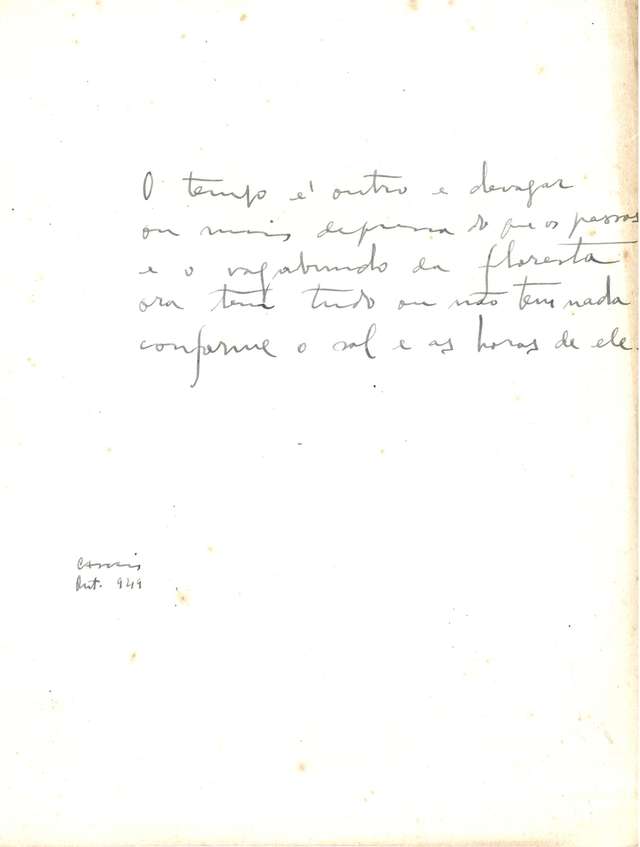 O tempo é outro e devagar
ou mais depressa do que os passos
e o vagabundo da floresta
ora tem tudo ou não tem nada
conforme o sol e as horas de ele.
Cascais
949